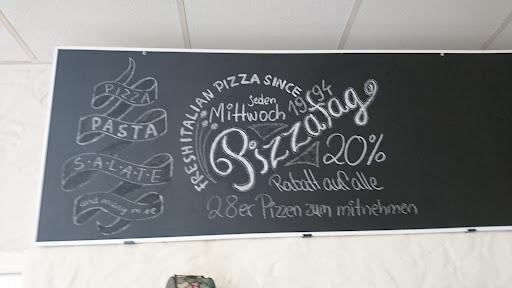 PIZZA
PASTA
S·A·L·A·T·E
and many more
FRESH ITALIAN PIZZA SINCE 1994
jeden
Mittwoch
Pizzatag
20%
Rabatt auf alle
28er Pizzen zum mitnehmen